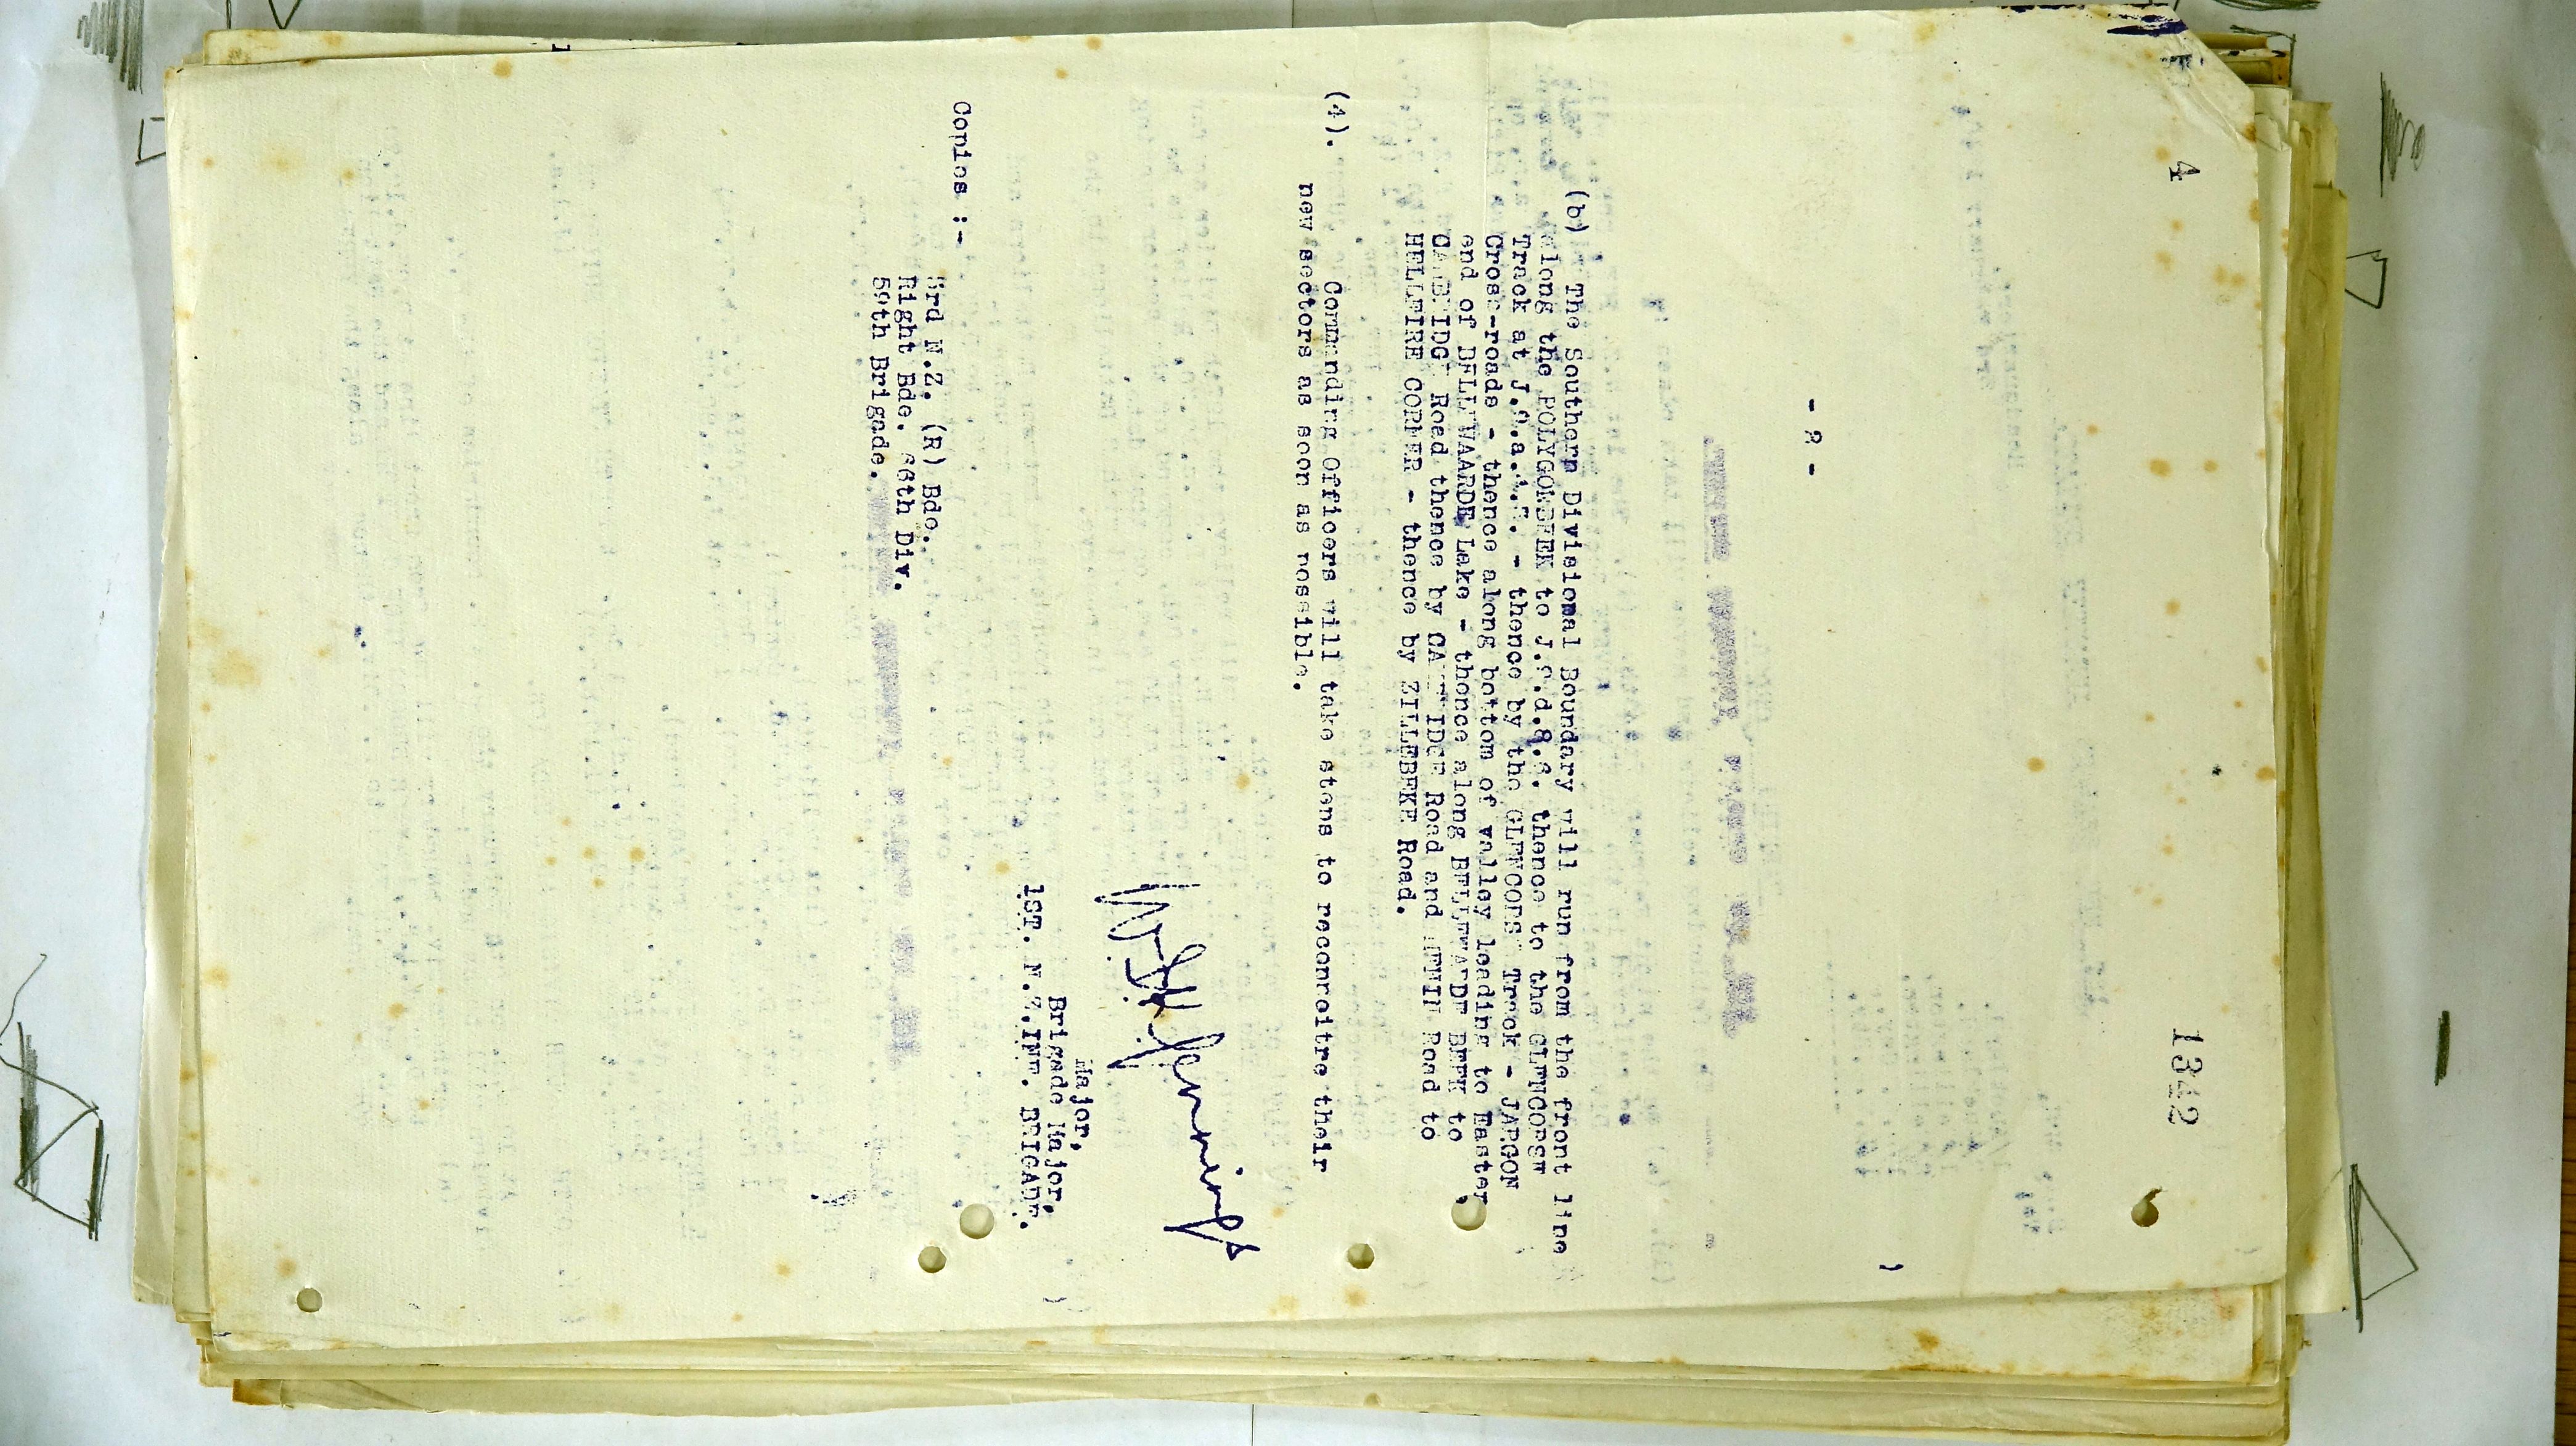 4
1342
- 2 -
(b) The Southern Divisional Boundary will run from the front line
along the POLYGONBEEK to thence to the GLENCORSE
Track at - thence by the GLENCORSE Track - JARGON
Cross-roads - thence along bottom of valley leading to Easter
end of BELLEWAARDE Lake - thence along BELLEWARDE BEEK to
CAMBRIDGE Road thence by CAMBRIDGE Road and Road to
HELLFIRE CORNER - thence by ZILLEBEKE Road.
(4). Commanding Officers will take steps to reconnoitre their
new sectors as soon as possible.
Jennings
Major,
Brigade Major,
1ST. N.Z.INF. BRIGADE.
Copies :-
3rd N.Z. (R) Bde.
Right Bde. 66th Div.
Brigade.